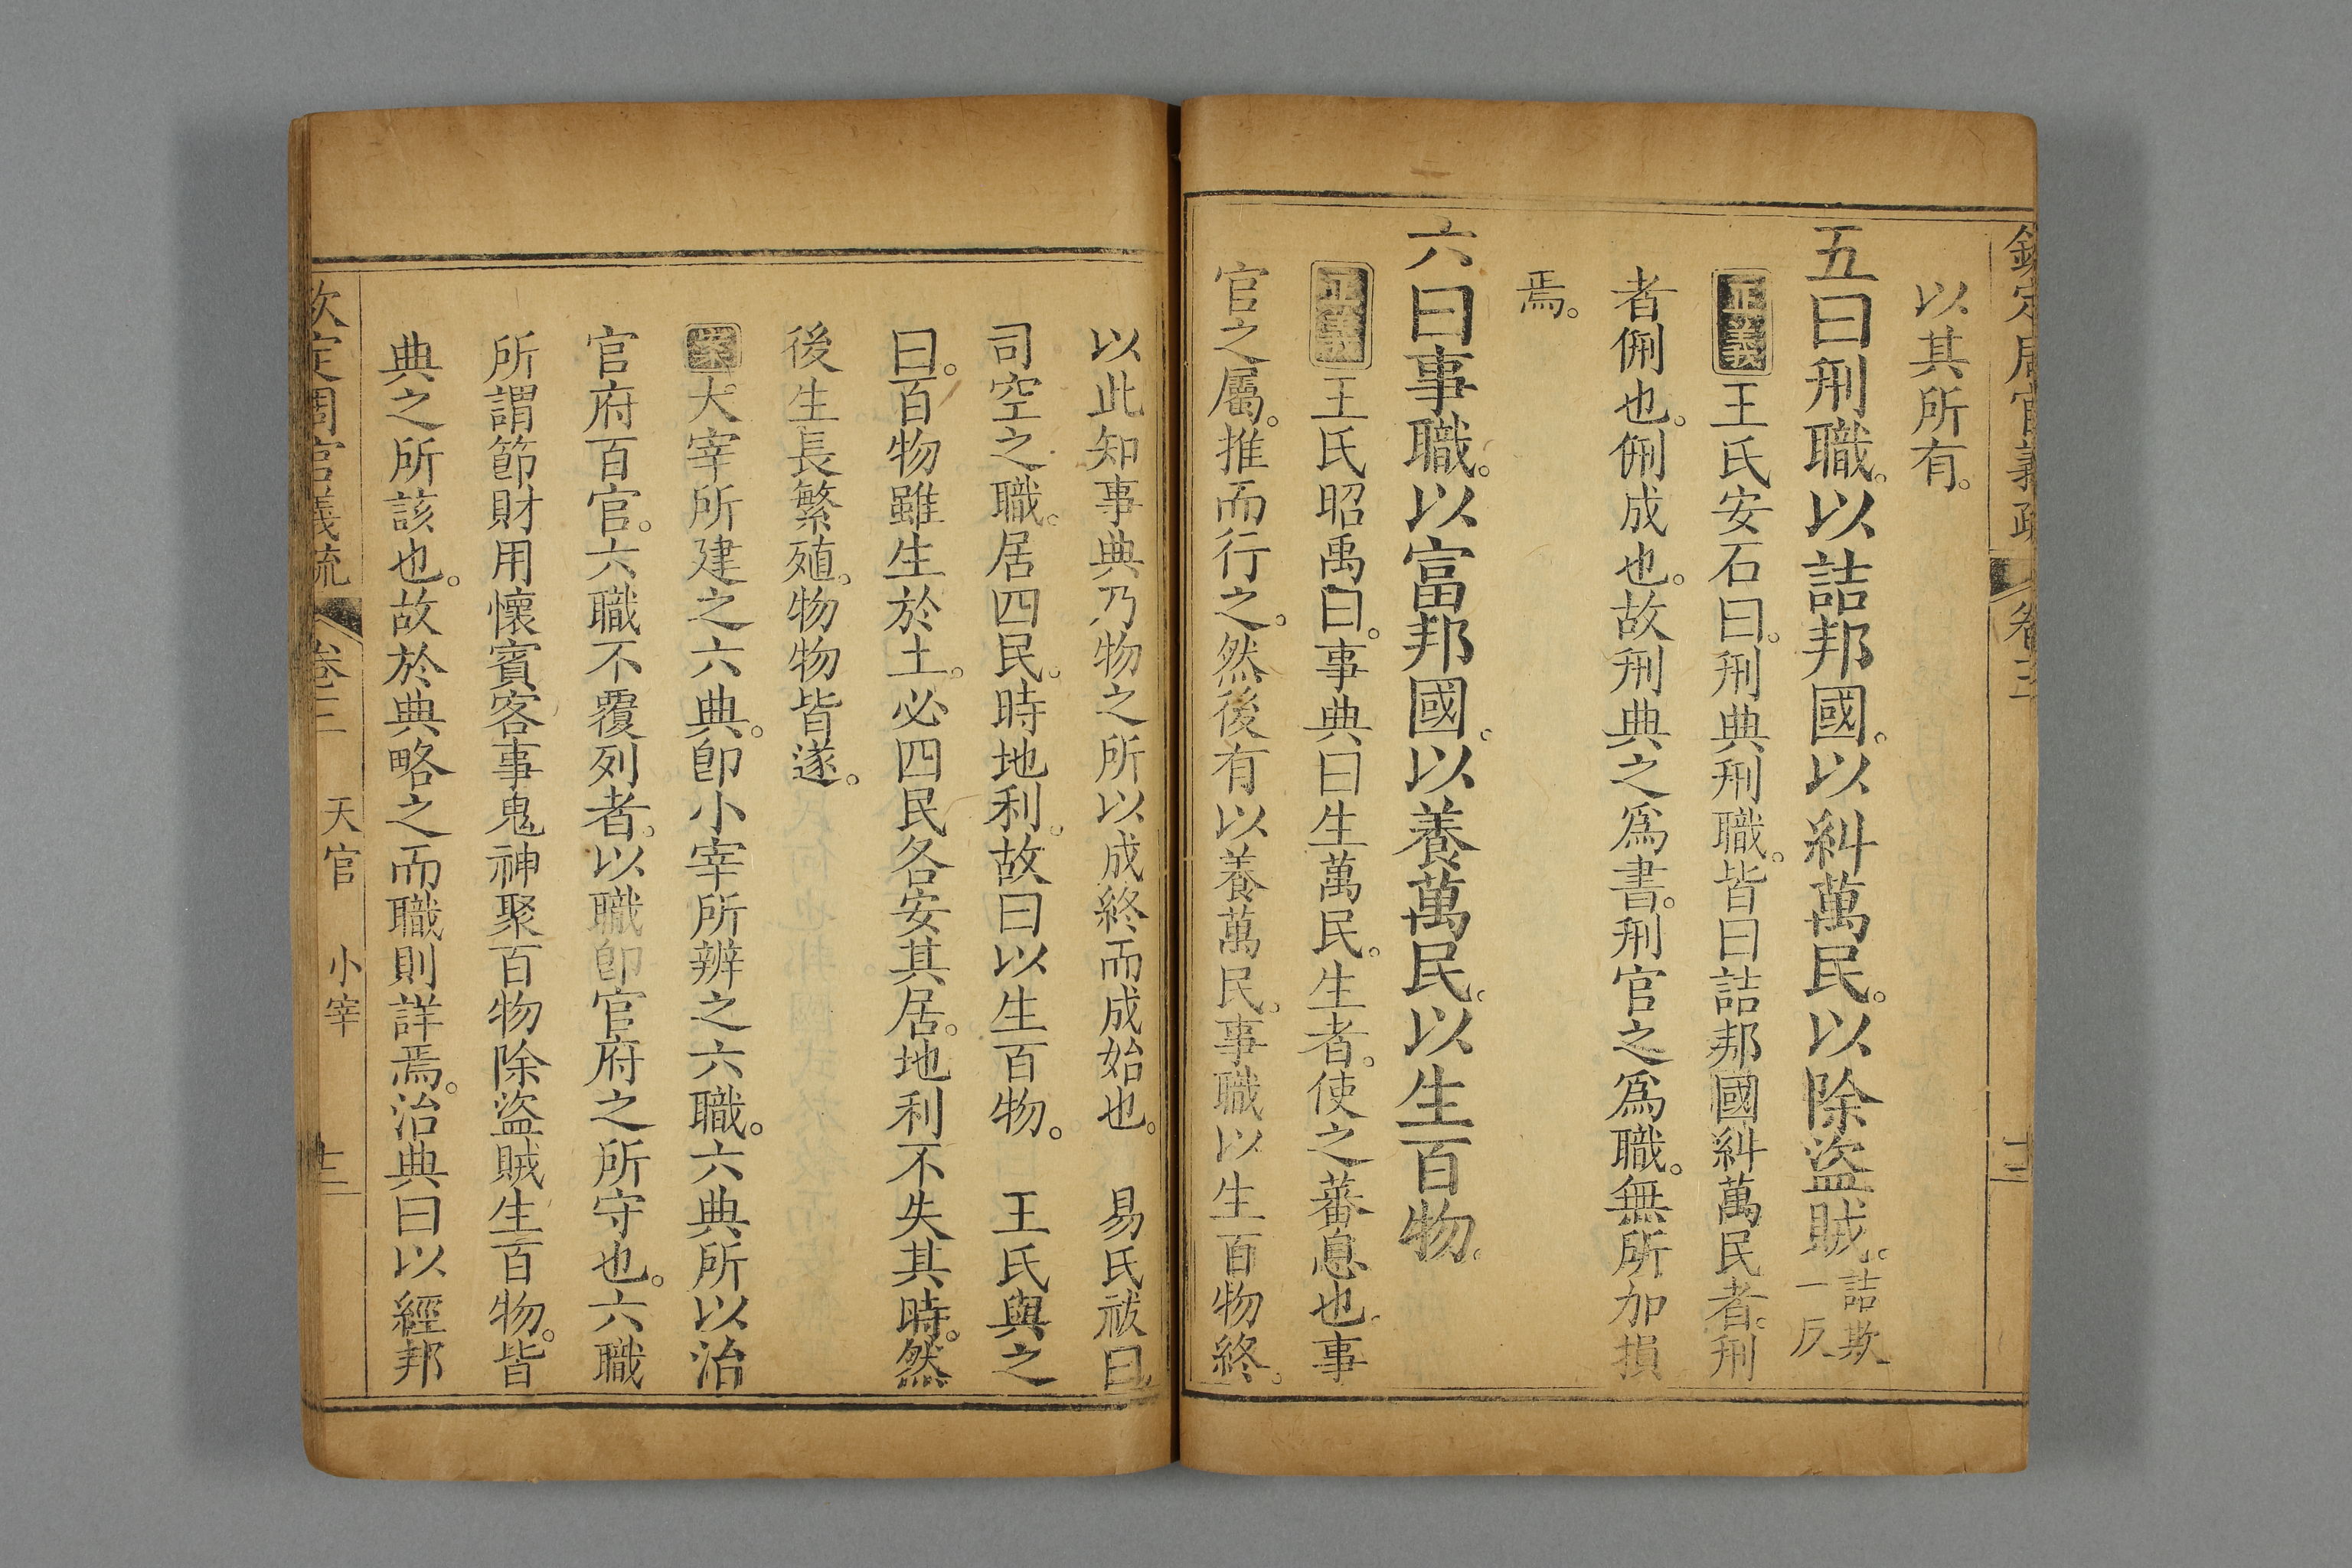 欽定周官義疏 卷三 十二
以其所有。
五曰刑職。以詰邦國。以糾萬民。以除盜賊。詰欺一反
正義 王氏安石曰。刑典刑職。皆曰詰邦國糾萬民者。刑
者侀也。侀成也。故刑典之爲書。刑官之爲職。無所加損
焉。
六曰事職。以富邦國。以養萬民。以生百物。
正義 王氏昭禹曰。事典曰生萬民。生者。使之蕃息也。事
官之屬。推而行之。然後有以養萬民。事職以生百物終。
以此知事典乃物之所以成終而成始也。 易氏祓曰。
司空之職。居四民。時地利。故曰以生百物。 王氏與之
曰。百物雖生於土。必四民各安其居。地利不失其時。然
後生長繁殖。物物皆遂。
案 大宰所建之六典。卽小宰所辨之六職。六典所以治
官府百官。六職不覆列者。以職卽官府之所守也。六職
所謂節財用懷賓客事鬼神聚百物除盜賊生百物。皆
典之所該也。故於典略之而職則詳焉。治典曰以經邦
欽定周官義疏 卷三 天官 小宰 十三